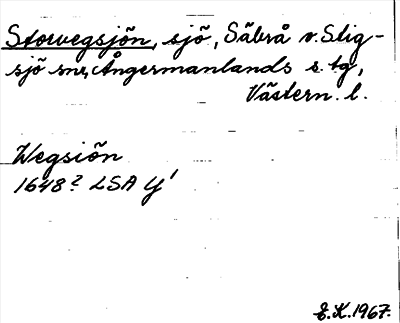 Storvegsjön, sjö, Säbrå o. Stig-
sjö snr, Ångermanlands s. tg,
Västern. l.
Wegsiön
1648? LSA Y'
E.K. 1967.